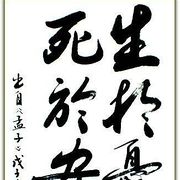 生於憂
死於安
出自《孟子》戊子